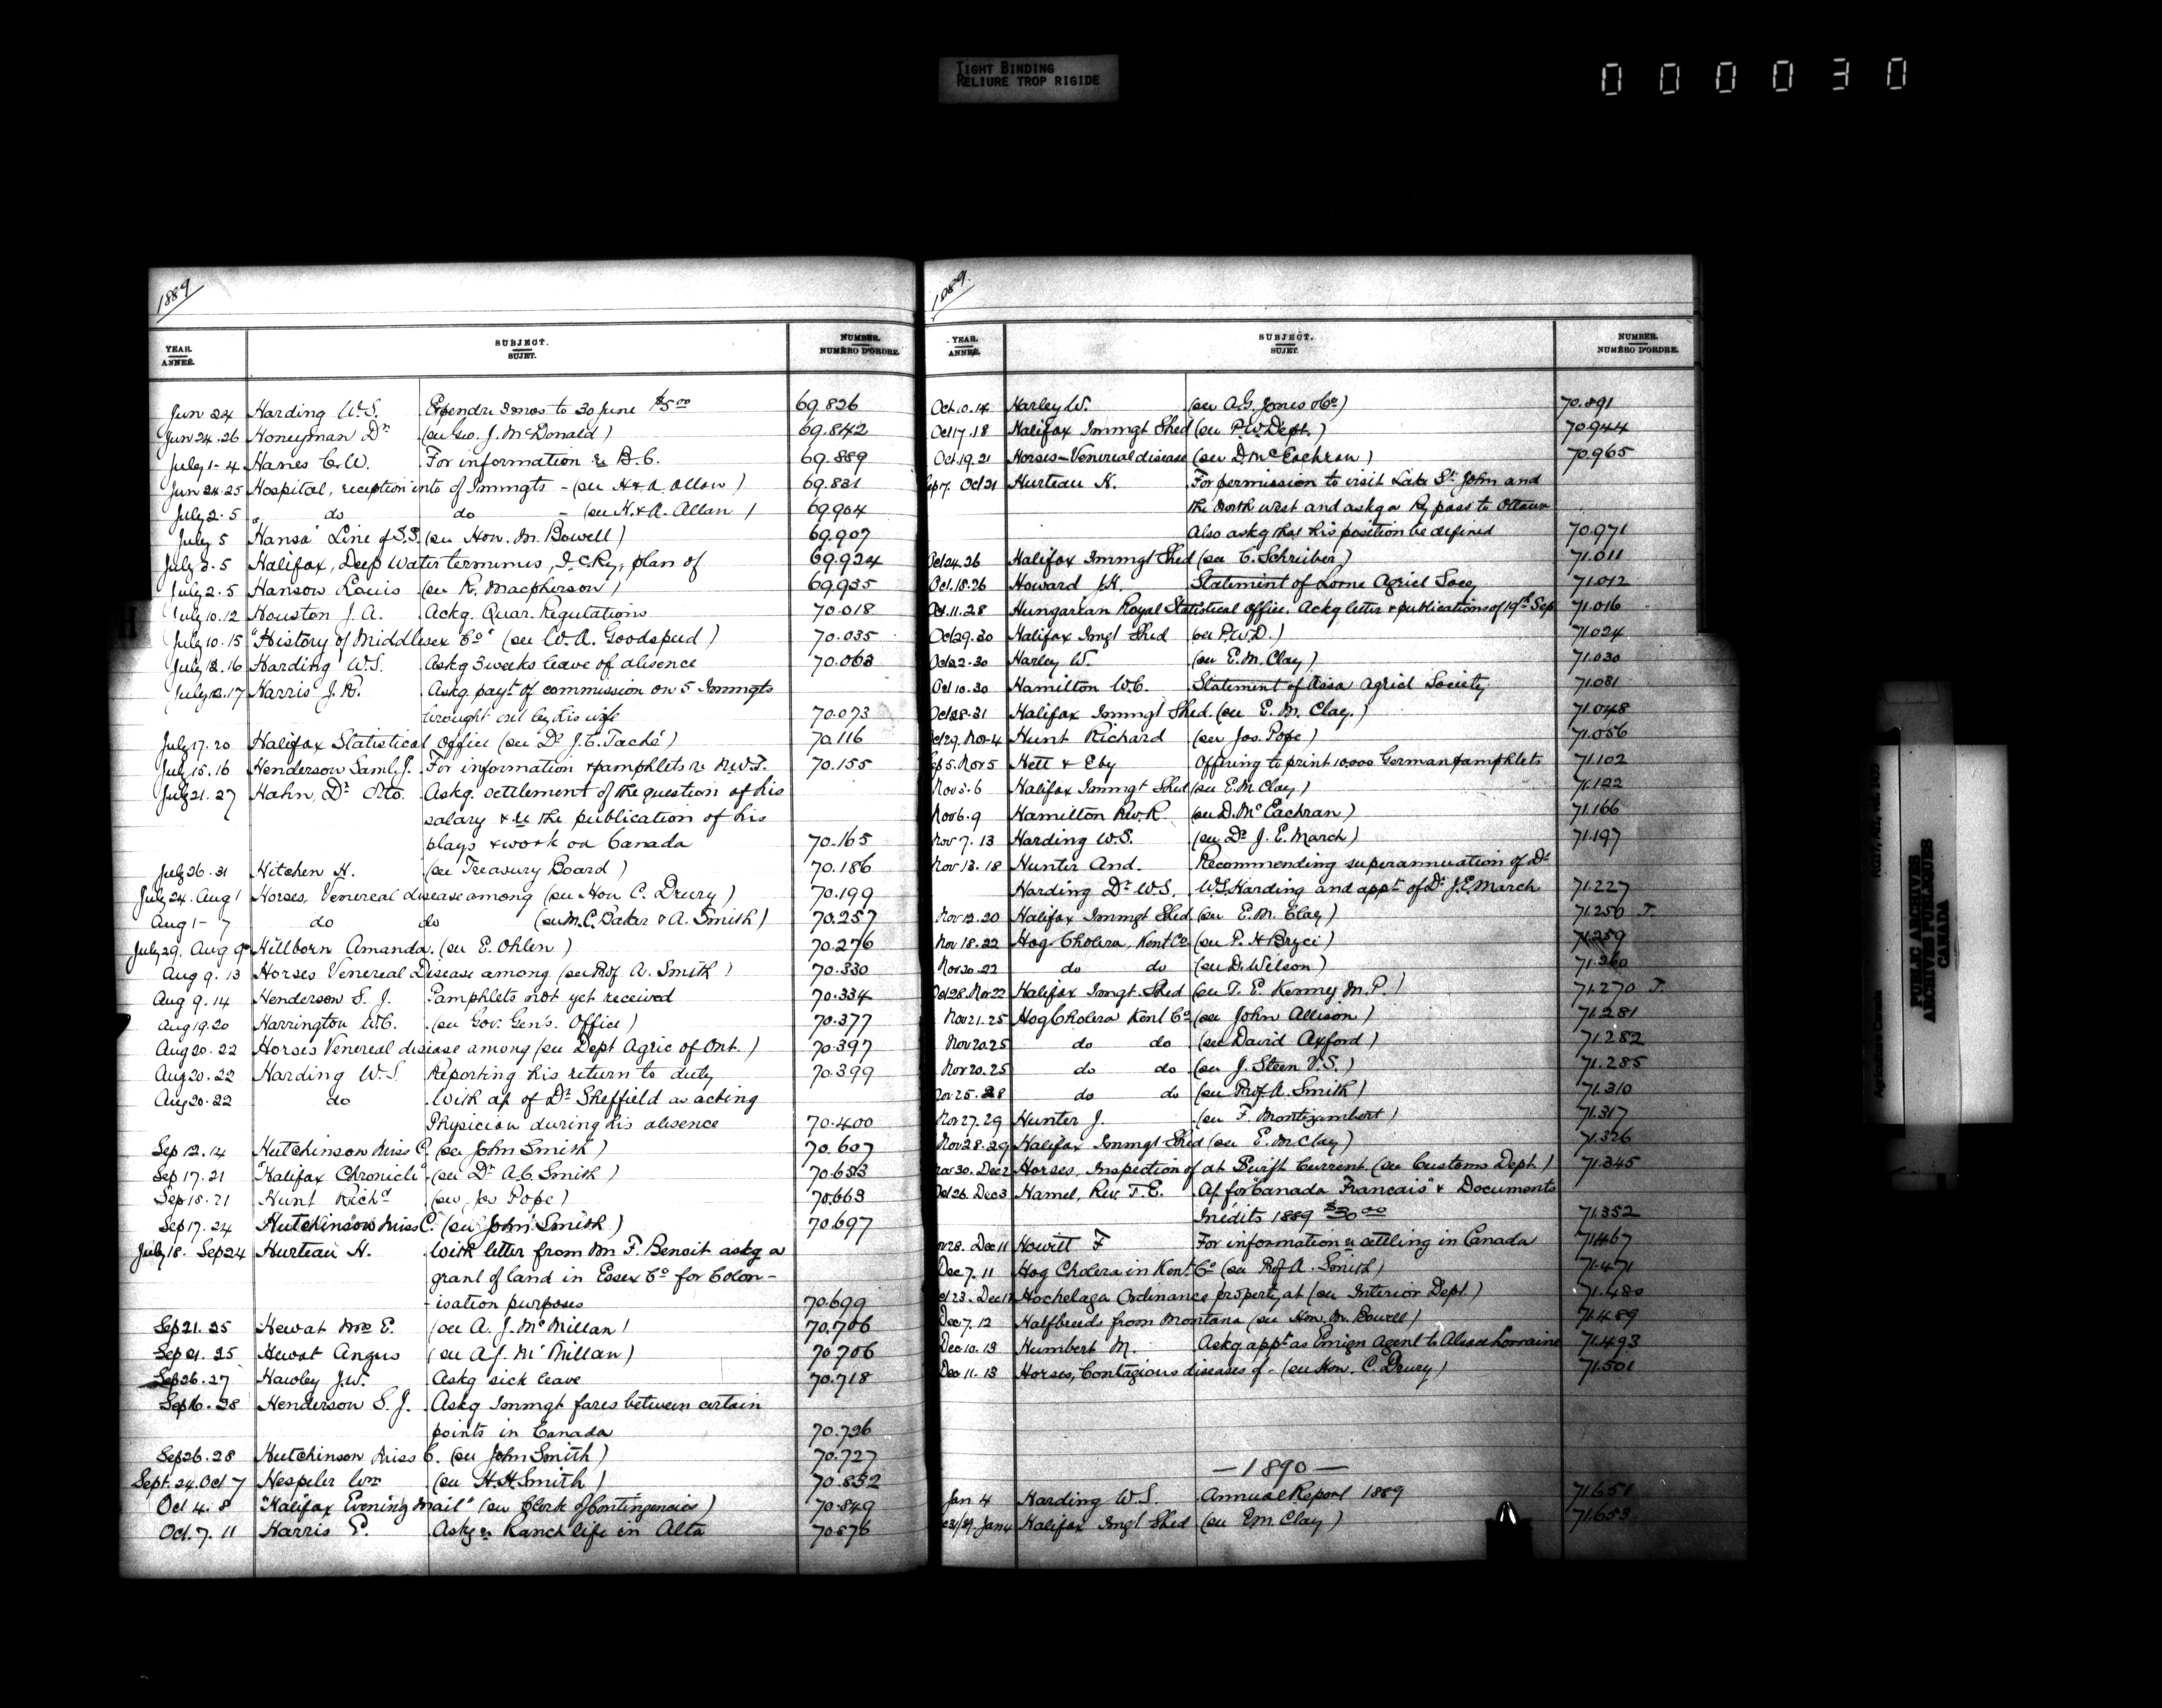 TIGHT BINDING
RELIURE TROP RIGIDE
000030
1889
YEAR. ANNÉE. SUBJECT. SUJET. NUMBER. NUMÉRO D'ORDRE.
Jun 24 Harding W.S. Expendre 3 mos to 30 June $5.00 69.826
Jun 24.26 Honeyman Dr (see Geo. J. McDonald) 69.842
July 1-4 Hanes C.W. For information re B.C. 69.889
Jun 24.25 Hospital, reception into of Immgts - (see H & A. Allan) 69.831
July 2.5 do do - (see H. & A. Allan) 69.904
July 5 "Hansa" Line of S.S. (see Hon. M. Bowell) 69.907
July 3.5 Halifax, Deep Water terminus, I.C.Ry, plan of 69.924
July 2.5 Hanson Louis (see R. Macpherson) 69.935
July 10.12 Houston J.A. Ackg. Quar. Regulations 70.018
July 10.15 "History of Middlesex Co" (see W.A. Goodspeed) 70.035
July 12.16 Harding W.S. Askg 3 weeks leave of absence 70.063
July 12.17 Harris J.R. Askg payt of commission on 5 Immgts
brought out by his wife 70.073
July 17.20 Halifax Statistical Officer (see Dr J.C. Taché) 70.116
July 15.16 Henderson Saml. J. For information & pamphlets re N.W.T. 70.155
July 21.27 Hahn, Dr Otto. Askg. settlement of the question of his
salary & re the publication of his
plays & work on Canada 70.165
July 26.31 Hitchen H. (see Treasury Board) 70.186
July 24. Aug 1 Horses, Venereal disease among (see Hon C. Drury) 70.199
Aug 1-7 do do (see M.C. Baker & A. Smith) 70.257
July 29. Aug 9 Hillborn Amanda. (see E. Ohlen) 70.276
Aug 9.13 Horses Venereal Disease among (see Prof. A. Smith) 70.330
Aug 9.14 Henderson S.J. Pamphlets not yet received 70.334
Aug 19.20 Harrington W.C. (see Gov. Gen's. Office) 70.377
Aug 20.22 Horses Venereal disease among (see Dept Agric of Ont.) 70.397
Aug 20.22 Harding W.S. Reporting his return to duty 70.399
Aug 20.22 do With a/c of Dr Sheffield as acting
Physician during his absence 70.400
Sep 12.14 Hutchinson Miss C. (see John Smith) 70.607
Sep 17.21 "Halifax Chronicle" (see Dr A.C. Smith) 70.653
Sep 18.21 Hunt Richd (see Jos Pope) 70.663
Sep 17.24 Hutchinson Miss C. (see John Smith) 70.697
July 18. Sep 24 Hurteau H. With letter from Mr F. Benoit askg a
grant of land in Essex Co for Colon-
-isation purposes 70.699
Sep 21.25 Hewat Mrs E. (see A.J. McMillan) 70.706
Sep 21.25 Hewat Angus (see A.J. McMillan) 70.706
Sep 26.27 Hawley J.W. Askg sick leave 70.718
Sep 16.28 Henderson S.J. Askg Immgt fares between certain
points in Canada 70.726
Sep 26.28 Hutchinson Miss C. (see John Smith) 70.727
Sept. 24. Oct 7 Hespeler Wm (see H.H. Smith) 70.832
Oct 4.8 "Halifax Evening Mail" (see Clerk of Contingencies) 70.849
Oct. 7.11 Harris P. Askg re Ranch life in Alta 70.876
1889.
YEAR. ANNÉE. SUBJECT. SUJET. NUMBER. NUMÉRO D'ORDRE.
Oct. 14 Harley W. (see A.G. Jones & Co) 70.891
Oct 17.18 Halifax Immgt Shed (see P.W. Dept.) 70.944
Oct. 19.21 Horses - Venereal disease (see D. McEachran) 70.965
Sep 17. Oct 21 Hurteau H. For permission to visit Lake St. John and
the North west and askg a Ry pass to Ottawa
Also askg that his position be defined 70.971
Oct 24.26 Halifax Immgt Shed (see C. Schreiber) 71.011
Oct. 18.26 Howard J.H. Statement of Lorne Agricl Socy 71.012
Oct. 11.28 Hungarian Royal Statistical Office. Ackg letter & publications of 19th Sep 71.016
Oct 29.30 Halifax Imgt Shed (see P.W.D.) 71.024
Oct 22.30 Harley W. (see E.M. Clay) 71.030
Oct 10.30 Hamilton W.C. Statement of Assa Agricl Society 71.031
Oct 28.31 Halifax Immgt Shed. (see E.M. Clay.) 71.048
Oct 29. Nov 4 Hunt Richard (see Jos. Pope) 71.056
Sep 5. Nov 5 Hett & Eby Offering to print 10.000 German pamphlets 71.102
Nov 5.6 Halifax Immgt Shed (see E.M. Clay) 71.122
Nov 6.9 Hamilton Rev. R. (see D. McEachran) 71.166
Nov 7.13 Harding W.S. (see Dr J.E. March) 71.197
Nov 13.18 Hunter And. Recommending superannuation of Dr
Harding Dr W.S. W.S. Harding and appt of Dr J.E. March 71.227
Nov 12.20 Halifax Immgt Shed (see E.M. Clay) 71.250 T.
Nov 18.22 Hog Cholera, Kent Co (see P.H. Bryce) 71.259
Nov 20.22 do do (see D. Wilson) 71.260
Oct 28. Nov 22 Halifax Imgt Shed (see T.E. Kenny M.P.) 71.270 T.
Nov 21.25 Hog Cholera Kent Co (see John Allison) 71.281
Nov 20.25 do do (see David Axford) 71.282
Nov 20.25 do do (see J. Steen V.S.) 71.285
Nov 25.28 do do (see Prof A. Smith) 71.310
Nov 27.29 Hunter J. (see F. Montizambert) 71.317
Nov 28.29 Halifax Immgt Shed (see E.M. Clay) 71.326
Nov 30. Dec 2 Horses, Inspection of at Swift Current (see Customs Dept.) 71.345
Oct 26. Dec 3 Hamel, Rev. T.E. A/c for "Canada Francais" & Documents
Inédits 1889 $30.00 71.352
Nov 28. Dec 11 Howitt F For information re settling in Canada 71.467
Dec 7.11 Hog Cholera in Kent Co (see Prof A. Smith) 71.471
Oct 23. Dec 12 Hochelaga Ordinance property at (see Interior Dept.) 71.480
Dec 7.12 Halfbreeds from Montana (see Hon. M. Bowell) 71.489
Dec 10.13 Humbert M. Askg appt as Emign Agent to Alsace Lorraine 71.493
Dec 11.13 Horses, Contagious diseases of - (see Hon. C. Drury) 71.501
— 1890 —
Jan 4 Harding W.S. Annual Report 1889 71.651
31/89. Jan 4 Halifax Imgt Shed (see E.M. Clay) 71.653
PUBLIC ARCHIVES
ARCHIVES PUBLIQUES
CANADA